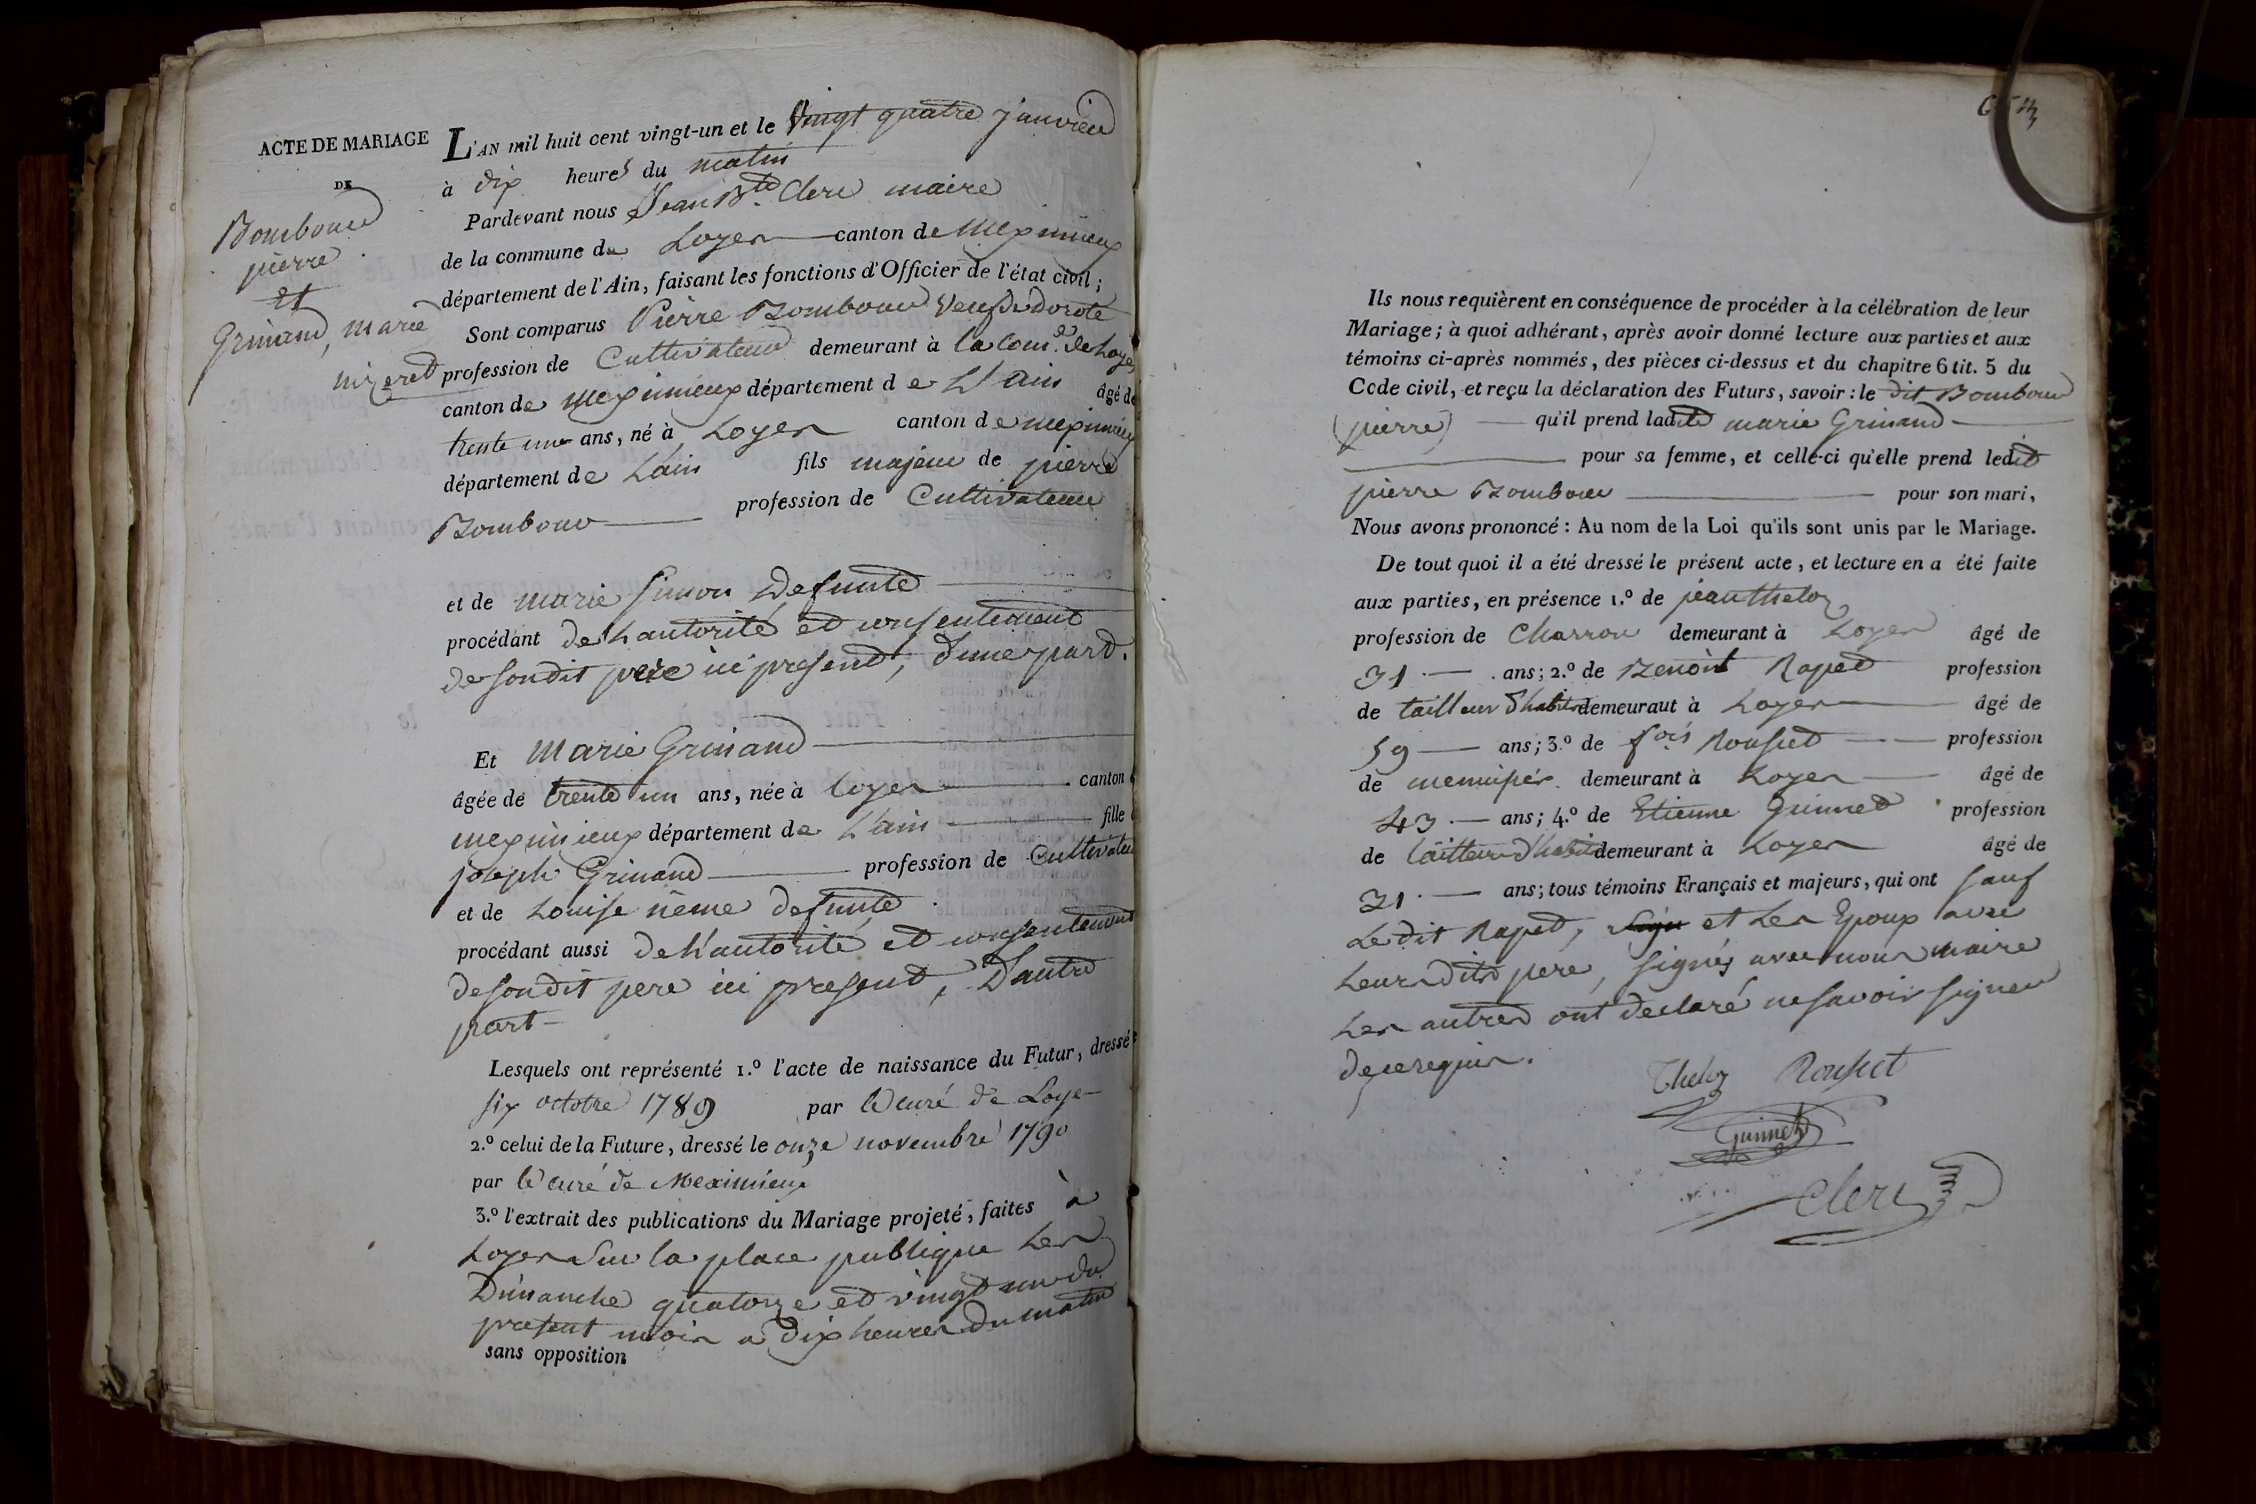 ACTE DE MARIAGE
DE
Bombour
pierre
et
Grinand, marie
L'AN mil huit cent vingt-un et le Vingt quatre janvier
à dix heures du matin
Pardevant nous Jean Bte. Clerc maire
de la commune de Loyes canton de Meximieux
département de l'Ain, faisant les fonctions d'Officier de l'état civil;
Sont comparus Pierre Bombour Veuf de dorote
mizeret profession de Cultivateur demeurant à la Com.e de Loyes
canton de Meximieux département de L'Ain âgé de
trente un ans, né à Loyes canton de meximieux
département de L'ain fils majeur de pierre
Bombour profession de Cultivateur
et de marie Simon Defunte
procédant de L'autorité et consentement
de sondit pere ici present, d'une part.
Et Marie Grinand
âgée de trente un ans, née à Loyes canton
meximieux département de L'ain fille
joseph Grinand profession de Cultivateur
et de Louise neme defunte
procédant aussi de L'autorité et consentement
de sondit pere ici present, D'autre
part
Lesquels ont représenté 1.º l'acte de naissance du Futur, dressé
six octobre 1789 par le curé de Loye
2.º celui de la Future, dressé le onze novembre 1790
par le curé de Meximieux
3.º l'extrait des publications du Mariage projeté, faites à
Loyes Sur la place publique Les
Dimanche quatorze et vingt un du
present mois a dix heures du matin
sans opposition
Ils nous requièrent en conséquence de procéder à la célébration de leur
Mariage; à quoi adhérant, après avoir donné lecture aux parties et aux
témoins ci-après nommés, des pièces ci-dessus et du chapitre 6 tit. 5 du
Code civil, et reçu la déclaration des Futurs, savoir: le dit Bombour
(pierre) qu'il prend ladite marie Grinand
pour sa femme, et celle-ci qu'elle prend ledit
pierre Bombour pour son mari,
Nous avons prononcé: Au nom de la Loi qu'ils sont unis par le Mariage.
De tout quoi il a été dressé le présent acte, et lecture en a été faite
aux parties, en présence 1.º de jean theloz
profession de Charron demeurant à Loyes âgé de
31 ans; 2.º de Benoit Rapet profession
de tailleur d'habits demeurant à Loyes âgé de
59 ans; 3.º de fois Rousset profession
de menuisier demeurant à Loyes âgé de
43 ans; 4.º de Etienne Guinnet profession
de tailleur d'habits demeurant à Loyes âgé de
31 ans; tous témoins Français et majeurs, qui ont sauf
Le dit Rapet, signé et Les Epoux avec
Leursdits pere, signés avec nous maire
Les autres ont déclaré ne savoir signer
de ce requis.
Theloz Rousset
Guinnet
Clerc